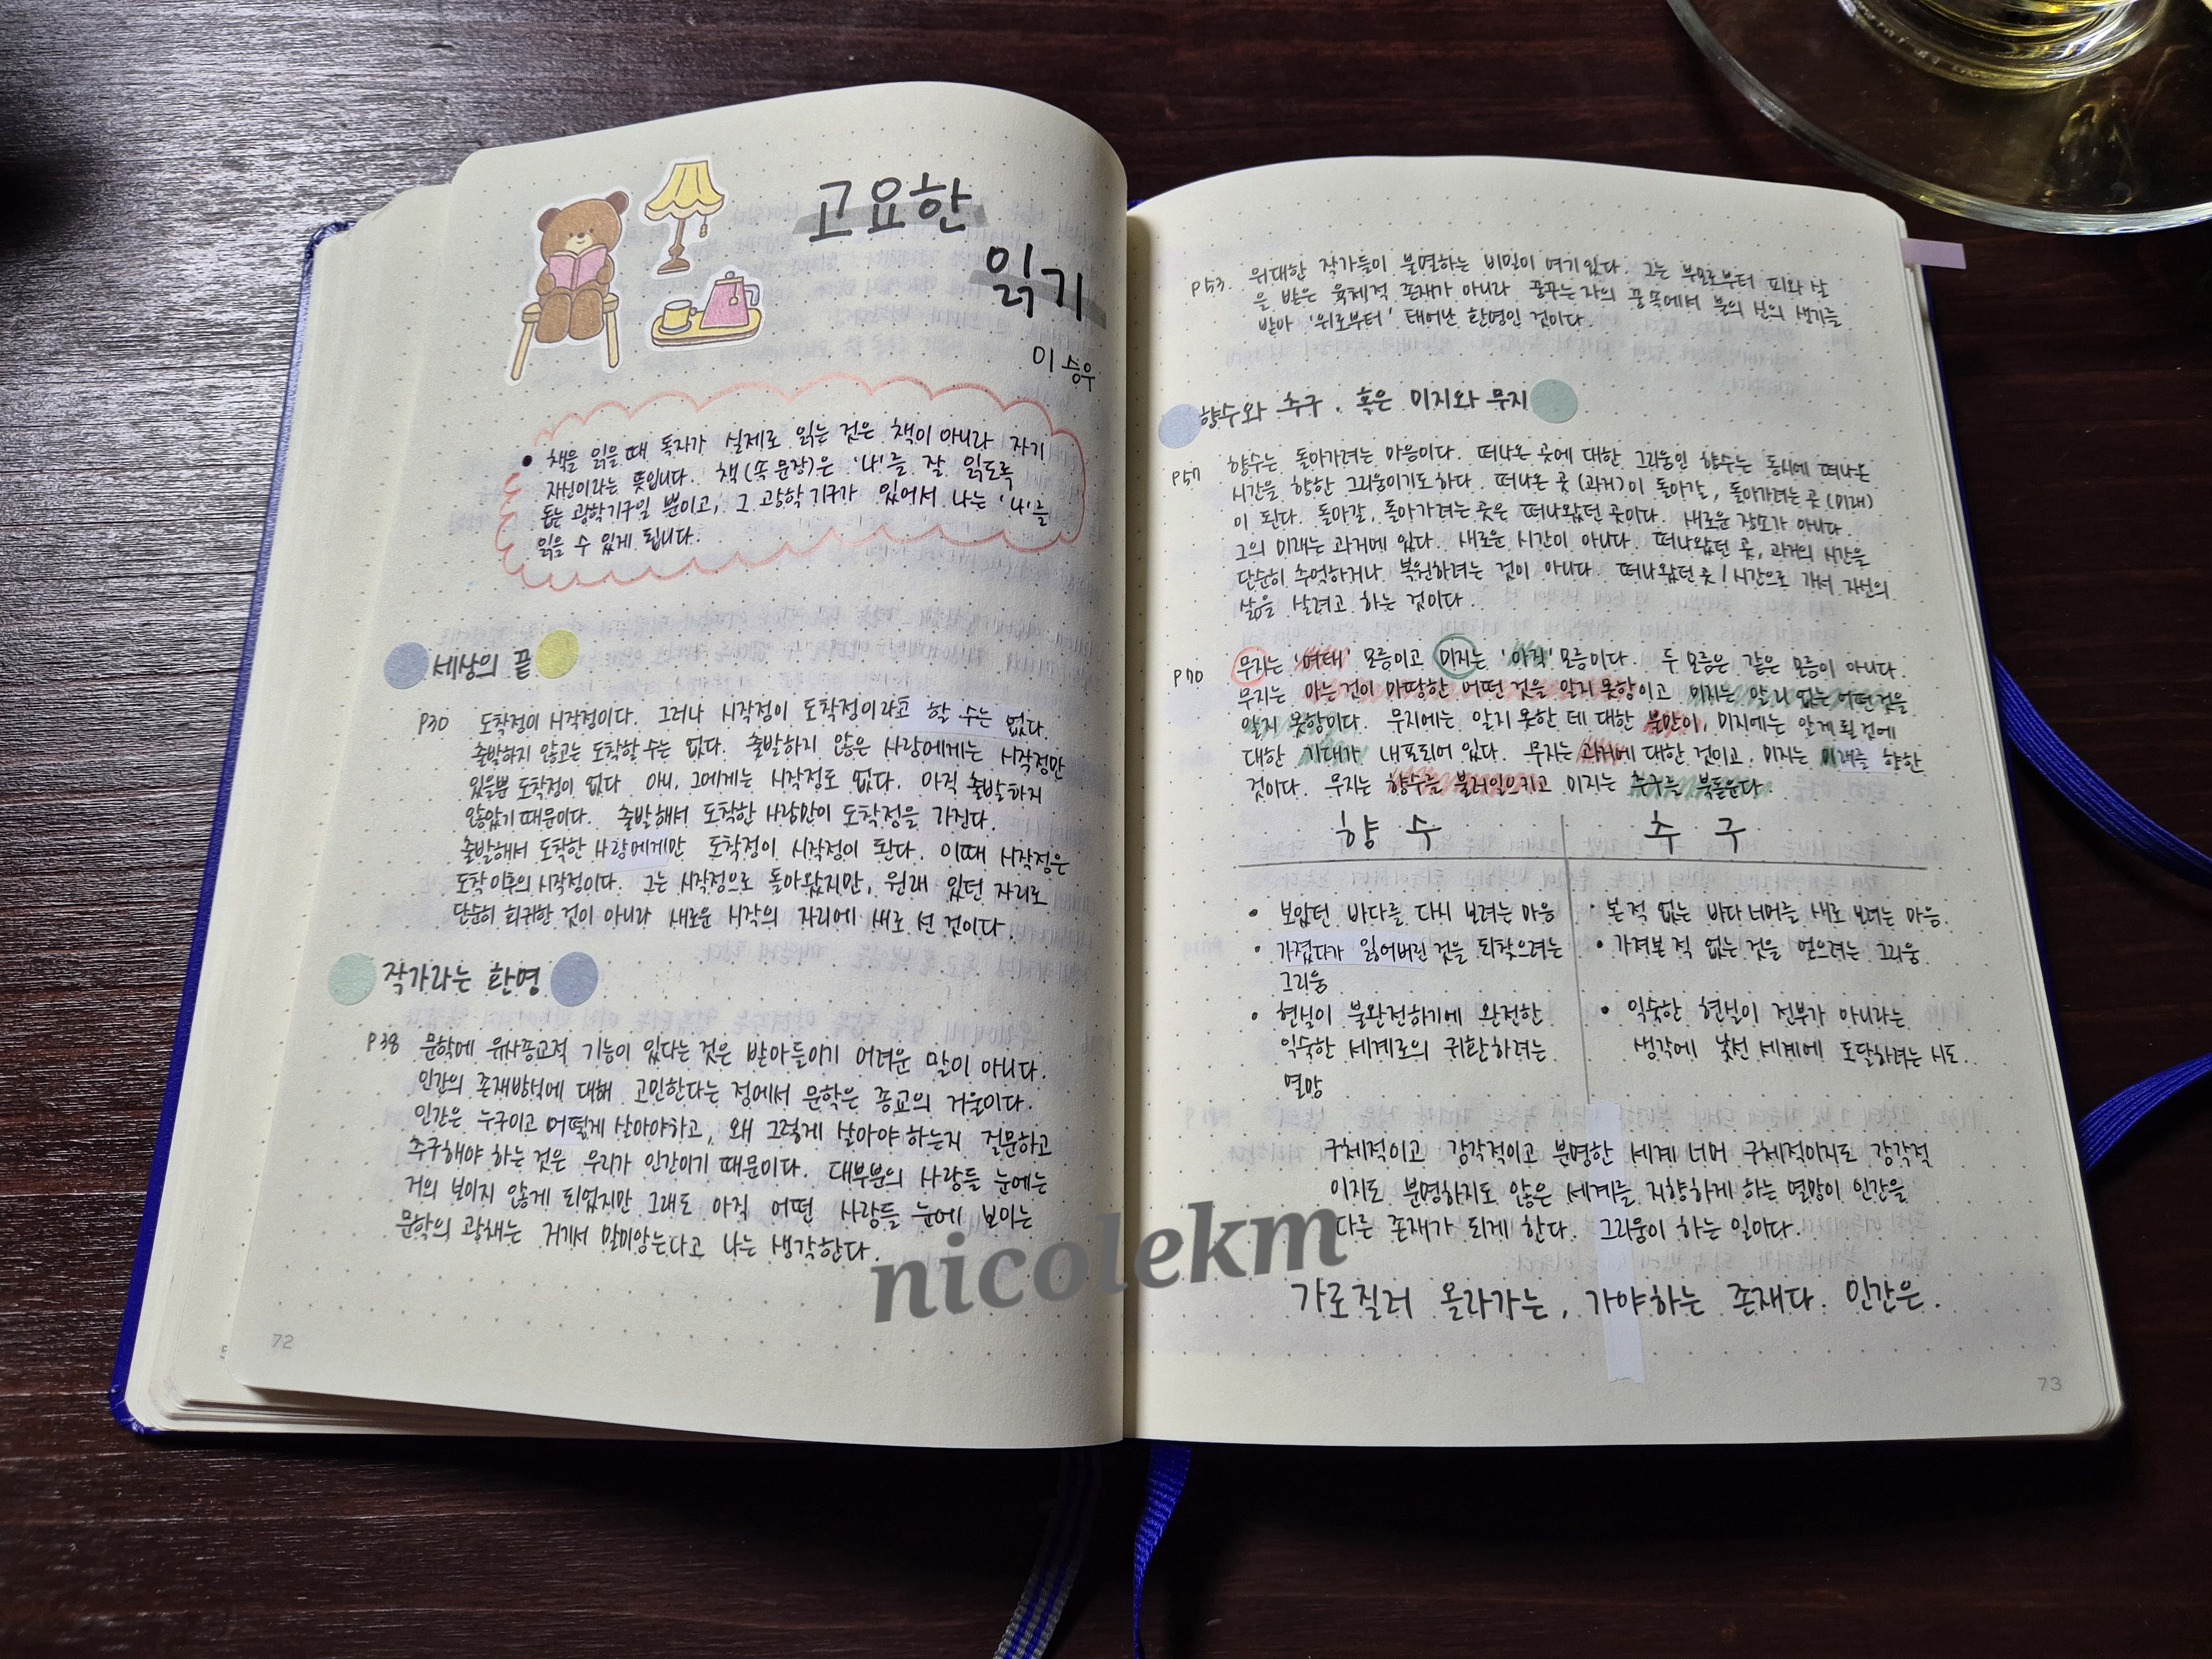 고요한
읽기
이승우
• 책을 읽을 때 독자가 실제로 읽는 것은 책이 아니라 자기
자신이라는 뜻입니다. 책(속 문장)은 '나'를 잘 읽도록
돕는 광학기구일 뿐이고, 그 광학기구가 있어서 나는 '나'를
읽을 수 있게 됩니다.
세상의 끝
p30 도착점이 시작점이다. 그러나 시작점이 도착점이라고 할 수는 없다.
출발하지 않고는 도착할 수는 없다. 출발하지 않은 사람에게는 시작점만
있을뿐 도착점이 없다. 아니, 그에게는 시작점도 없다. 아직 출발하지
않았기 때문이다. 출발해서 도착한 사람만이 도착점을 가진다.
출발해서 도착한 사람에게만 도착점이 시작점이 된다. 이때 시작점은
도착 이후의 시작점이다. 그는 시작점으로 돌아왔지만, 원래 있던 자리로
단순히 회귀한 것이 아니라 새로운 시작의 자리에 새로 선 것이다.
작가라는 환영
p38 문학에 유사종교적 기능이 있다는 것은 받아들이기 어려운 말이 아니다.
인간의 존재방식에 대해 고민한다는 점에서 문학은 종교의 거울이다.
인간은 누구이고 어떻게 살아야하고, 왜 그렇게 살아야 하는지 질문하고
추구해야 하는 것은 우리가 인간이기 때문이다. 대부분의 사람들 눈에는
거의 보이지 않게 되었지만 그래도 아직 어떤 사람들 눈에 보이는
문학의 광채는 거기서 말미암는다고 나는 생각한다.
72
p53. 위대한 작가들이 불멸하는 비밀이 여기 있다. 그는 부모로부터 피와 살
을 받은 육체적 존재가 아니라 꿈꾸는 자의 꿈 속에서 불의 신의 생기를
받아 '위로부터' 태어난 환영인 것이다.
향수와 추구, 혹은 미지와 무지
p57 향수는 돌아가려는 마음이다. 떠나온 곳에 대한 그리움인 향수는 동시에 떠나온
시간을 향한 그리움이기도 하다. 떠나온 곳(과거)이 돌아갈, 돌아가려는 곳(미래)
이 된다. 돌아갈, 돌아가려는 곳은 떠나왔던 곳이다. 새로운 장소가 아니다.
그의 미래는 과거에 있다. 새로운 시간이 아니다. 떠나왔던 곳, 과거의 시간을
단순히 추억하거나 복원하려는 것이 아니다. 떠나왔던 곳/시간으로 가서 자신의
삶을 살려고 하는 것이다.
p70 무지는 '여태' 모름이고 미지는 '아직' 모름이다. 두 모름은 같은 모름이 아니다.
무지는 아는 것이 마땅한 어떤 것을 알지 못함이고 미지는 알 리 없는 어떤 것을
알지 못함이다. 무지에는 알지 못한 데 대한 불만이, 미지에는 알게 될 것에
대한 기대가 내포되어 있다. 무지는 과거에 대한 것이고, 미지는 미래를 향한
것이다. 무지는 향수를 불러일으키고 미지는 추구를 북돋운다.
향수 추구
• 보았던 바다를 다시 보려는 마음
• 가졌다가 잃어버린 것을 되찾으려는
그리움
• 현실이 불완전하기에 완전한
익숙한 세계로의 귀환하려는
열망
• 본 적 없는 바다 너머를 새로 보려는 마음.
• 가져본 적 없는 것을 얻으려는 그리움
• 익숙한 현실이 전부가 아니라는
생각에 낯선 세계에 도달하려는 시도.
구체적이고 감각적이고 분명한 세계 너머 구체적이지도 감각적
이지도 분명하지도 않은 세계를 지향하게 하는 열망이 인간을
다른 존재가 되게 한다. 그리움이 하는 일이다.
가로질러 올라가는, 가야하는 존재다. 인간은.
73
nicolekm